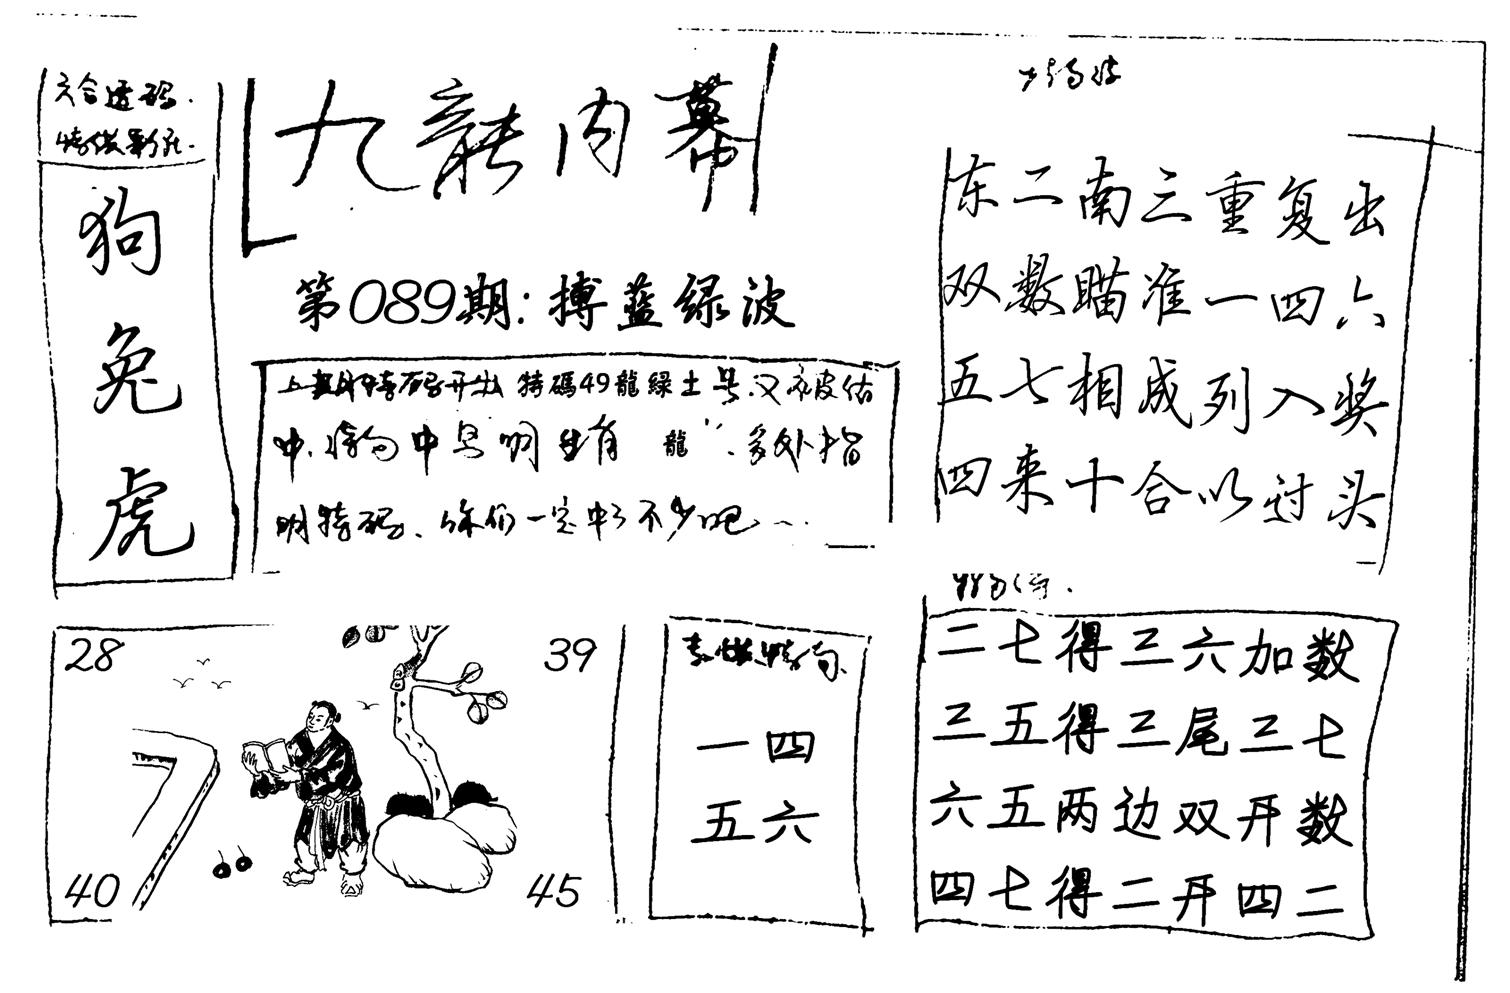 六合透码
狗
兔
虎
九龍内幕
第089期:搏蓝绿波
上期特码开出 特碼49龍綠土号.又被估
中.特码中号明生肖 龍 另外指
明特码、你们一定中了不少吧
东二南三重复出
双数瞄准一四六
五七相成列入奖
四来十合以过头
28
39
40
45
一四
五六
二七得三六加数
三五得三尾三七
六五两边双开数
四七得二开四二